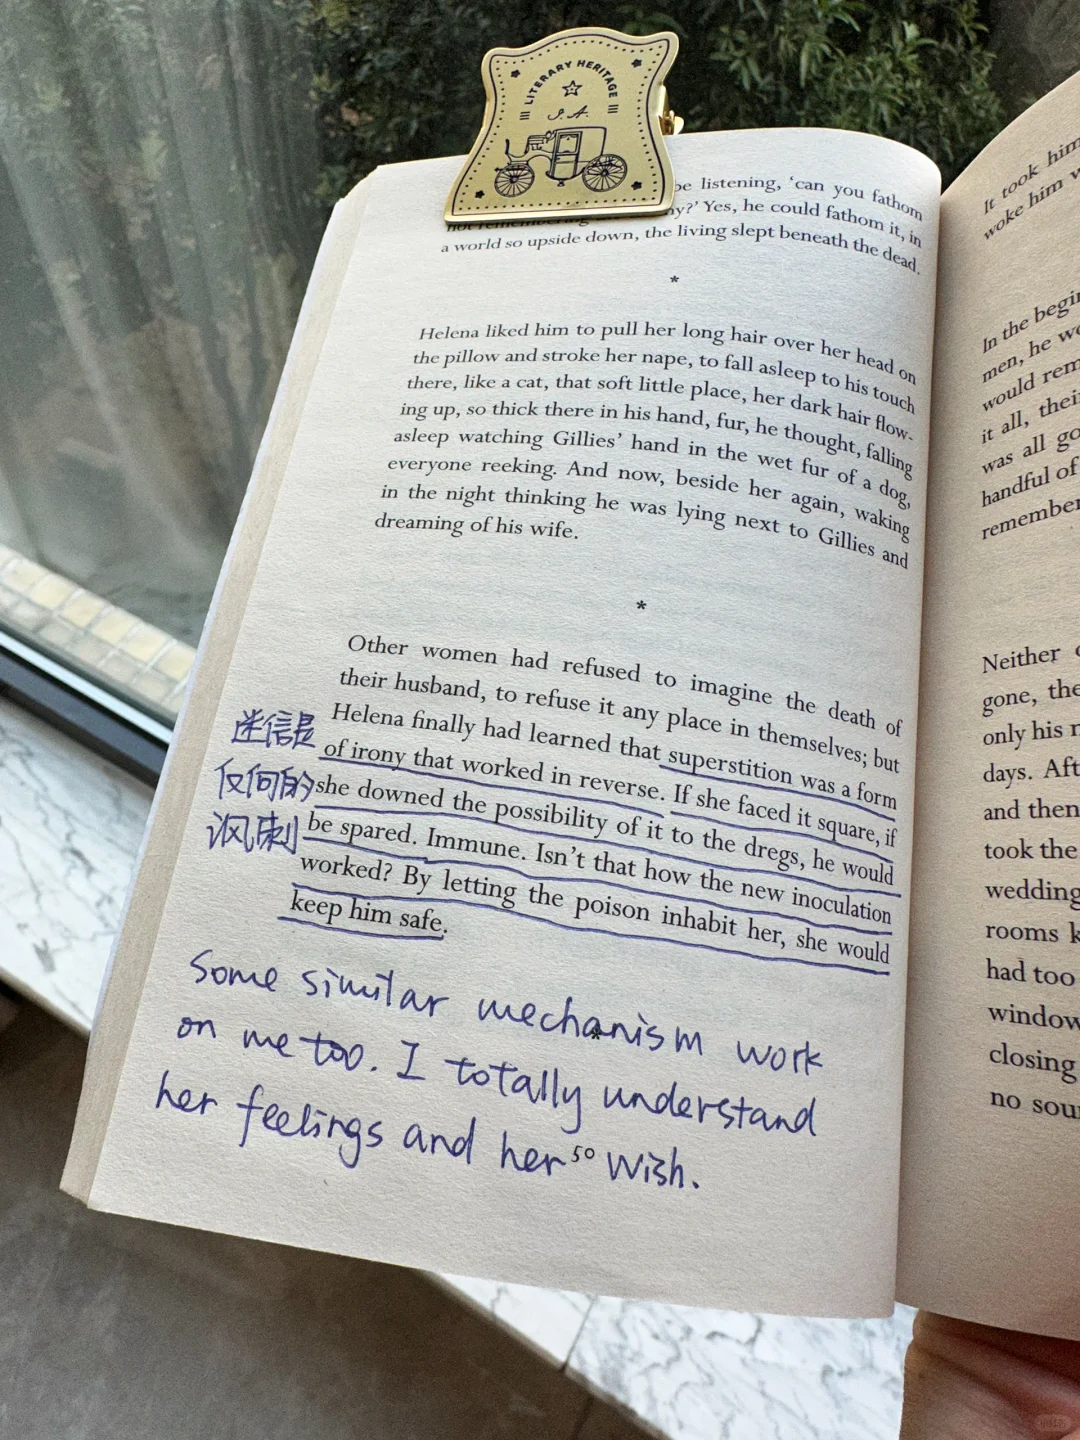 LITERARY HERITAGE
J. A.
be listening, ‘can you fathom
not remembering ny?’ Yes, he could fathom it, in
a world so upside down, the living slept beneath the dead.
*
Helena liked him to pull her long hair over her head on
the pillow and stroke her nape, to fall asleep to his touch
there, like a cat, that soft little place, her dark hair flow-
ing up, so thick there in his hand, fur, he thought, falling
asleep watching Gillies’ hand in the wet fur of a dog,
everyone reeking. And now, beside her again, waking
in the night thinking he was lying next to Gillies and
dreaming of his wife.
*
Other women had refused to imagine the death of
their husband, to refuse it any place in themselves; but
Helena finally had learned that superstition was a form
of irony that worked in reverse. If she faced it square, if
she downed the possibility of it to the dregs, he would
be spared. Immune. Isn’t that how the new inoculation
worked? By letting the poison inhabit her, she would
keep him safe.
迷信是
反向的
讽刺
*
Some similar mechanism work
on me too. I totally understand
her feelings and her wish.
50
It took him
woke him w
In the begin
men, he wo
would rem
it all, thei
was all go
handful of
remember
Neither
gone, the
only his
days. Aft
and then
took the
wedding
rooms k
had too
window
closing
no sou